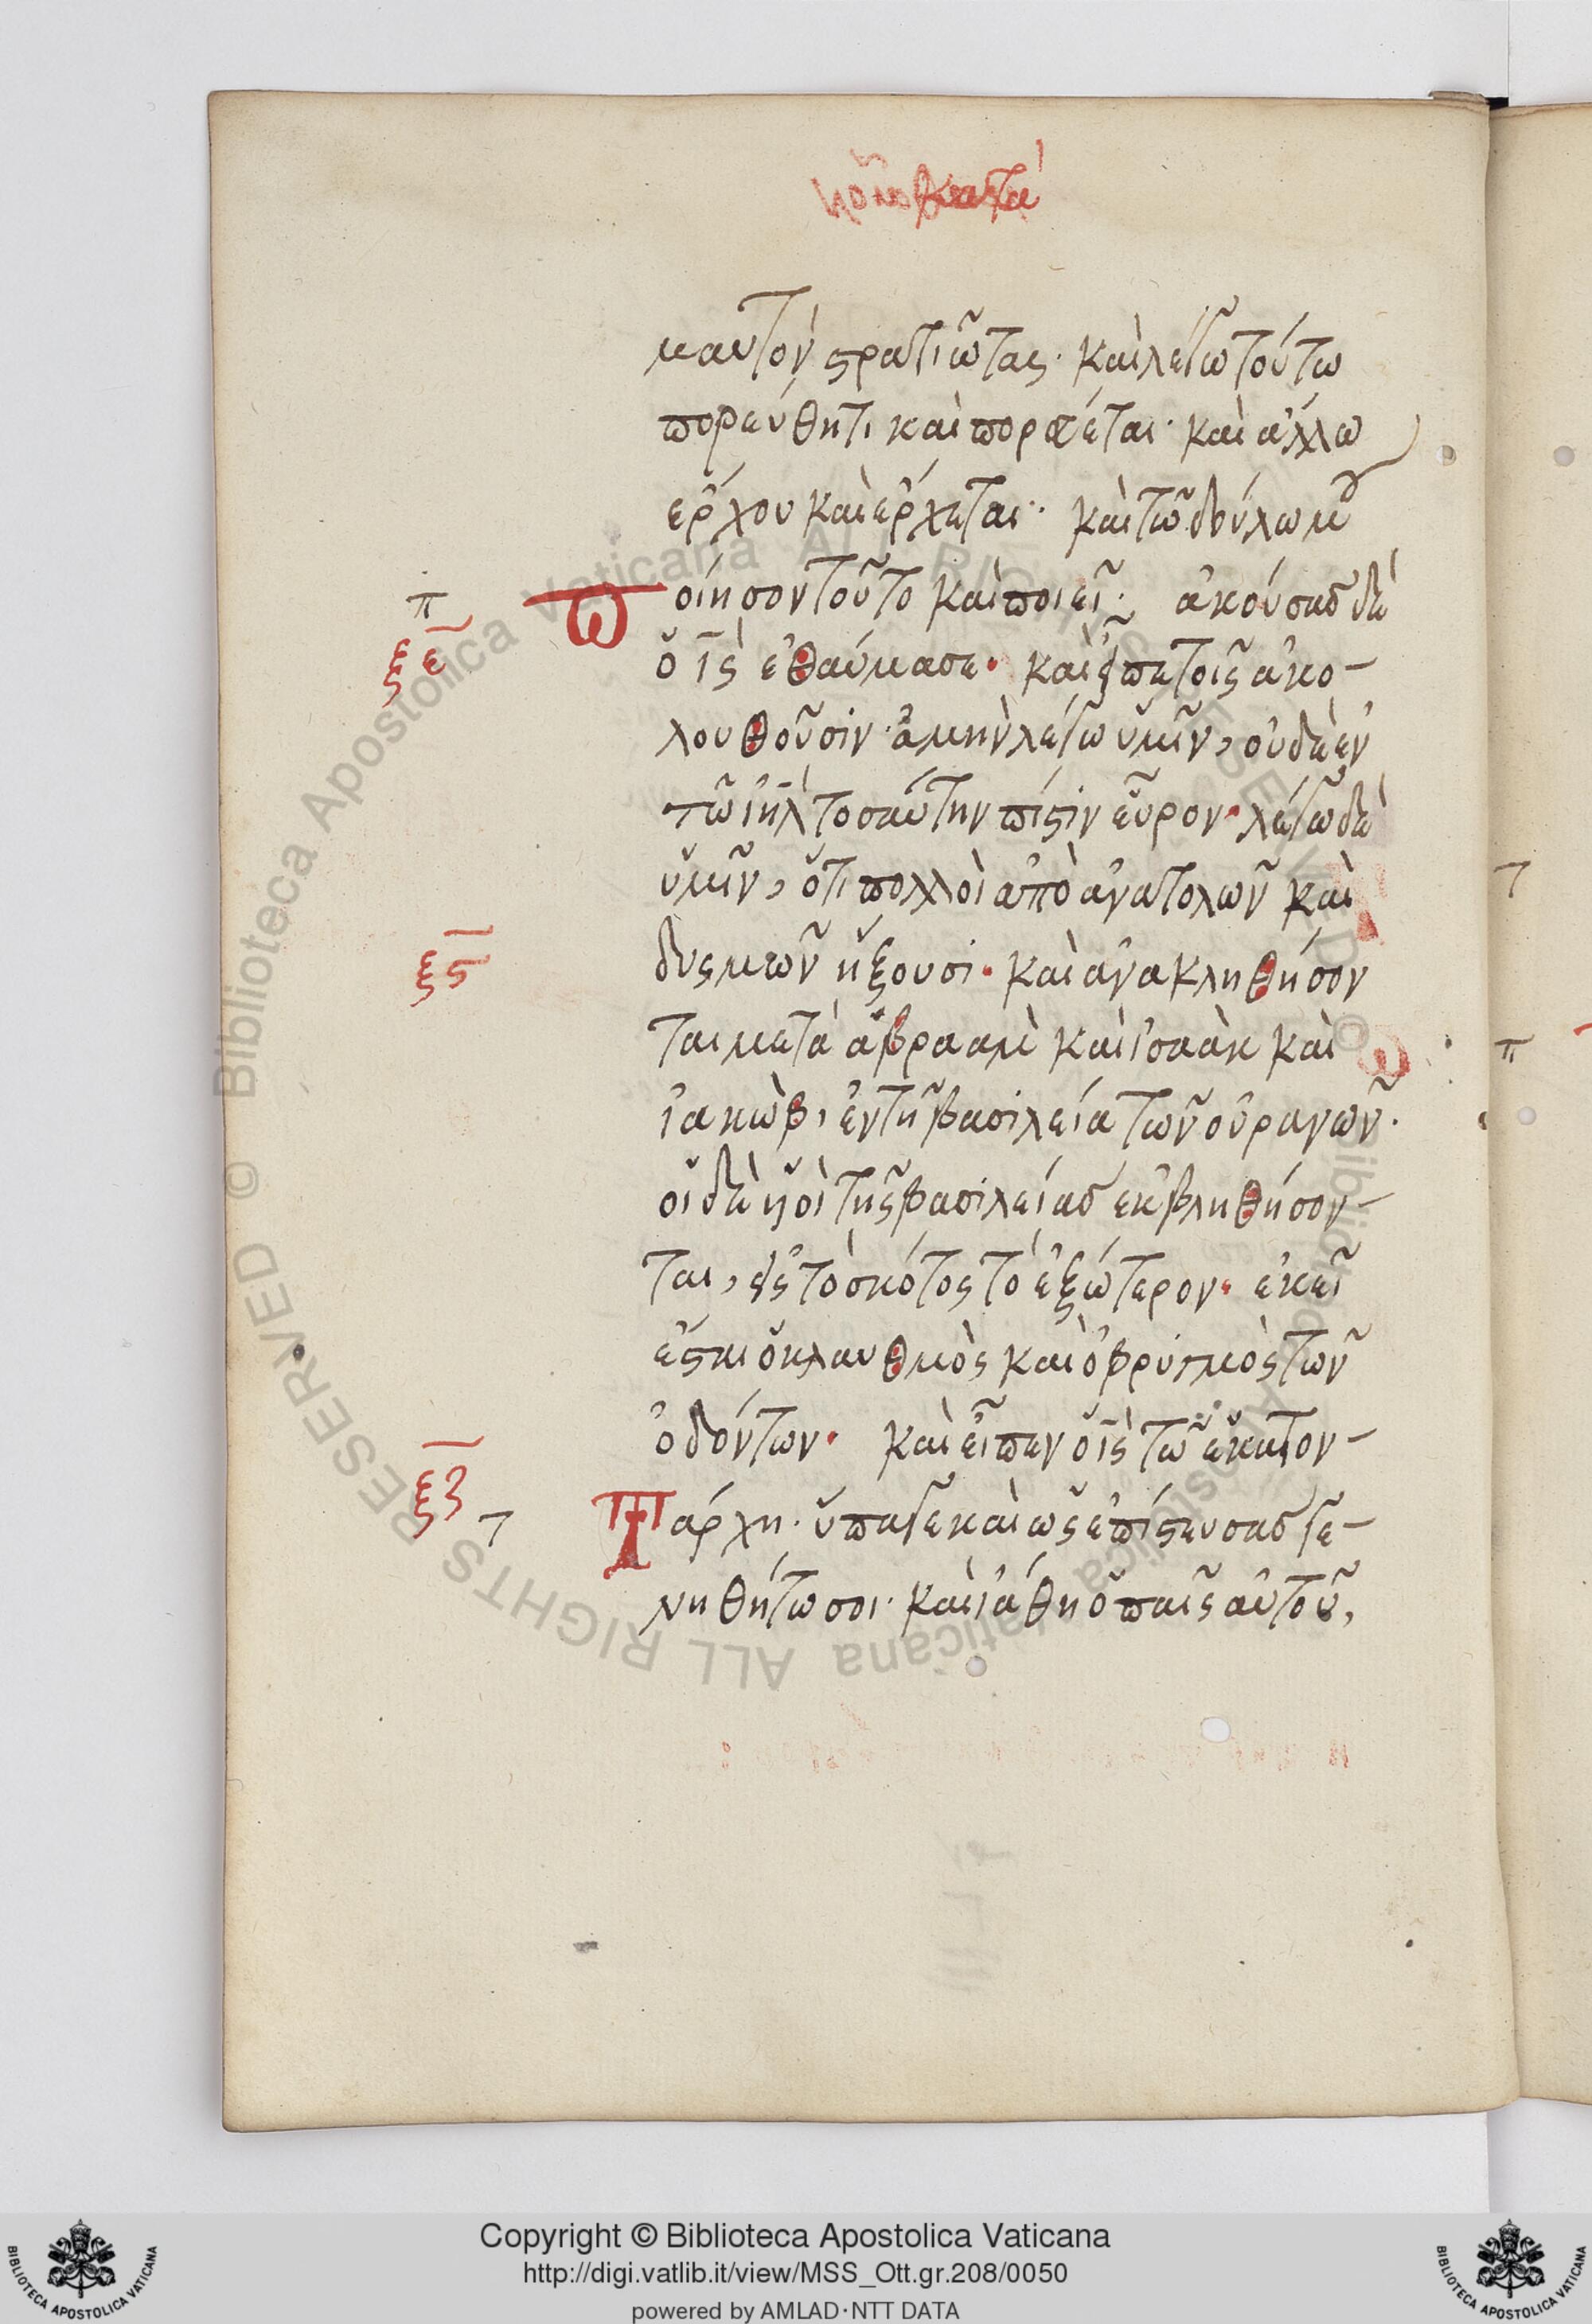 μαυτὸν στρατιώτας· καὶ λέγω τούτω
πορεύθητι καὶ πορεύεται· καὶ ἄλλω
ἔρχου καὶ ἔρχεται· καὶ τῶ δούλω μου
π
Ποίησον τοῦτο καὶ ποιεῖ· ἀκούσας δὲ
ξε
ὁ ι̅ς̅ ἐθαύμασε· καὶ εἶπε τοῖς ἀκο-
λουθοῦσιν· ἀμὴν λέγω ὑμῖν, οὐδὲ ἐν
τῶ ι̅η̅λ̅ τοσαύτην πίστιν εὗρον· λέγω δὲ
ὑμῖν, ὅτι πολλοὶ ἀπὸ ἀνατολῶν καὶ
ξς
δυσμῶν ἥξουσι· καὶ ἀνακληθήσον
ται μετὰ ἀβραὰμ καὶ ἰσαὰκ καὶ
ἰακὼβ, ἐν τῆ βασιλεία τῶν οὐρανῶν·
οἱ δὲ υἱοὶ τῆς βασιλείας ἐκβληθήσον-
ται, εἰς τὸ σκότος τὸ ἐξώτερον· ἐκεῖ
ἔσται ὁ κλαυθμὸς καὶ ὁ βρυγμὸς τῶν
ὀδόντων· καὶ εἶπεν ὁ ι̅ς̅ τῶ ἑκατον-
ξζ
Τάρχη· ὕπαγε καὶ ὡς ἐπίστευσας γε-
νηθήτω σοι· καὶ ἰάθη ὁ παῖς αὐτοῦ,
Copyright © Biblioteca Apostolica Vaticana
http://digi.vatlib.it/view/MSS_Ott.gr.208/0050
powered by AMLAD·NTT DATA
BIBLIOTECA APOSTOLICA VATICANA
BIBLIOTECA APOSTOLICA VATICANA
Biblioteca Apostolica Vaticana ALL RIGHTS RESERVED ©